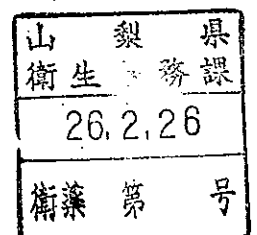 山梨県
衛生 務課
26.2.26
衛薬 第 号